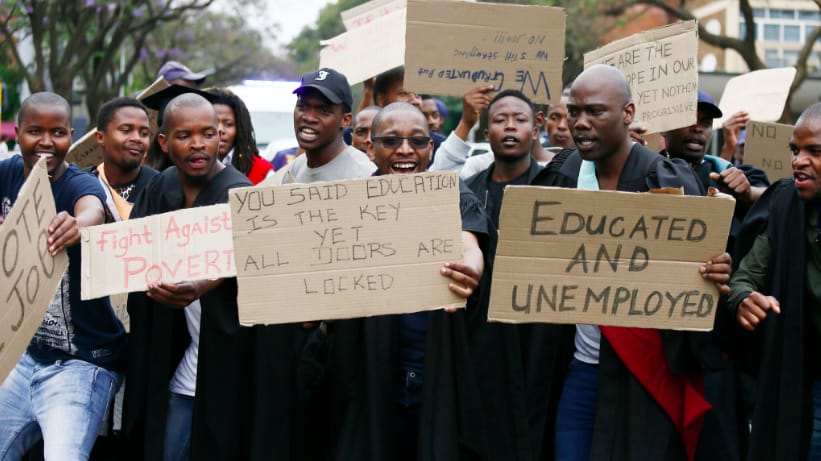 WE ARE THE
OPE IN OUR
YET NOTHIN
PROGRESSIVE
NO N
OTE
JOO
Fight Agaist
POVERT
YOU SAID EDUCATION
IS THE KEY
YET
ALL DOORS ARE
LOCKED
EDUCATED
AND
UNEMPLOYED